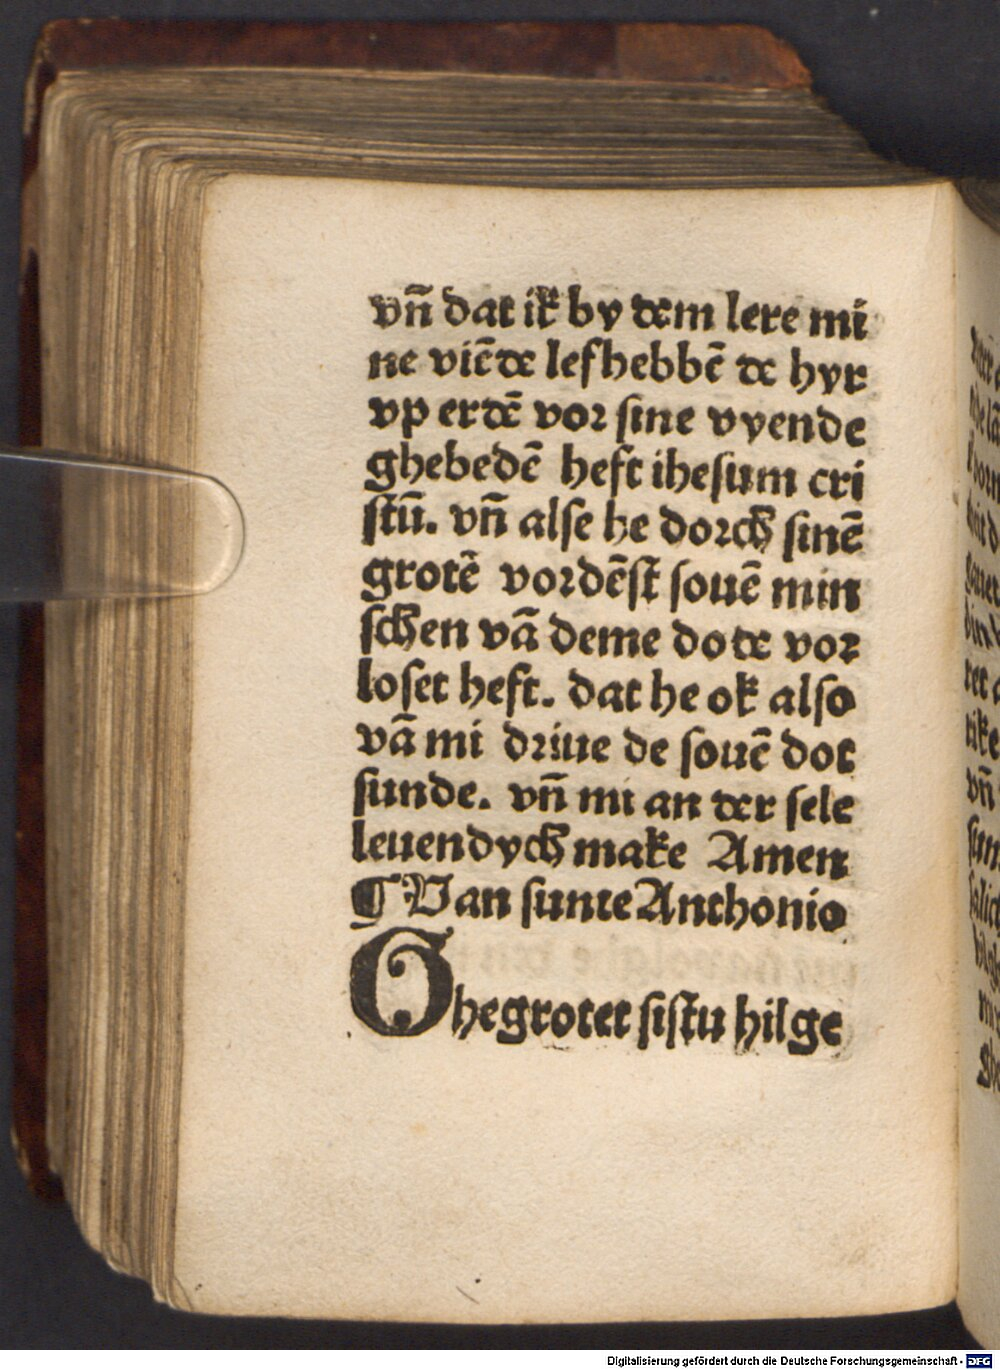 vñ dat ik by dem lere mi
ne viẽde lefhebbẽ de hyr
vp erdẽ vor sine vyende
ghebedẽ heft ihesum cri
stũ. vñ alse he dorch sinẽ
grotẽ vordẽst souẽ min
schen vã deme dode vor
loset heft. dat he ok also
vã mi driue de souẽ dot
sunde. vñ mi an der sele
leuendych make Amen
¶ Van sunte Anthonio
Ghegrotet sistu hilge
Digitalisierung gefördert durch die Deutsche Forschungsgemeinschaft - DFG